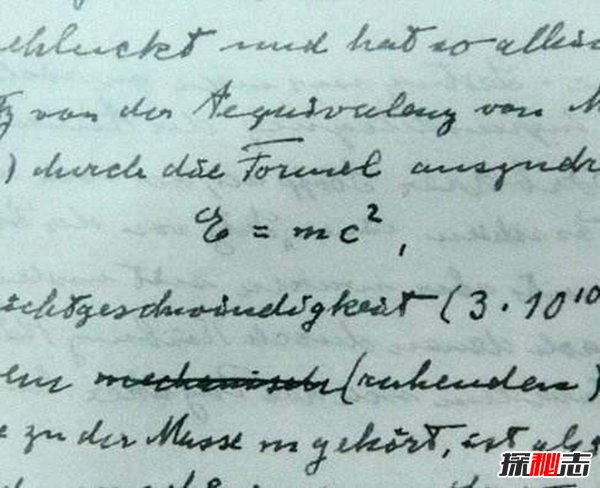 schluckt und hat so allein
von der Aequivalenz von M
) durch die Formel auszudr
E = mc²,
ichtgeschwindigkeit (3 · 10¹⁰
em mechanisch (ruhenden)
e zu der Masse m gehört, ist als
探秘志